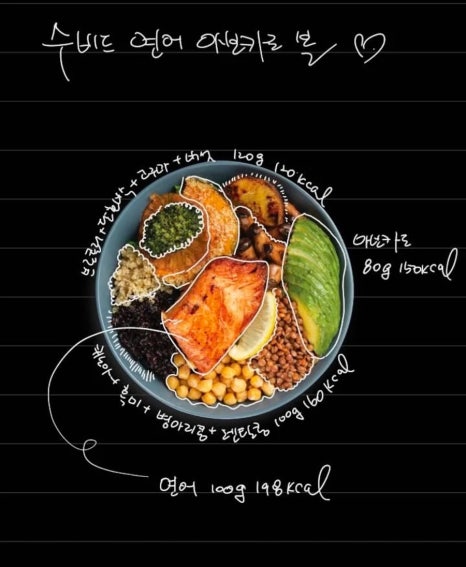 수비드 연어 아보카도 볼 ♡
브로콜리+단호박+고구마+버섯 120g 120kcal
아보카도
80g 150kcal
퀴노아+흑미+병아리콩+렌틸콩 100g 160kcal
연어 100g 198kcal